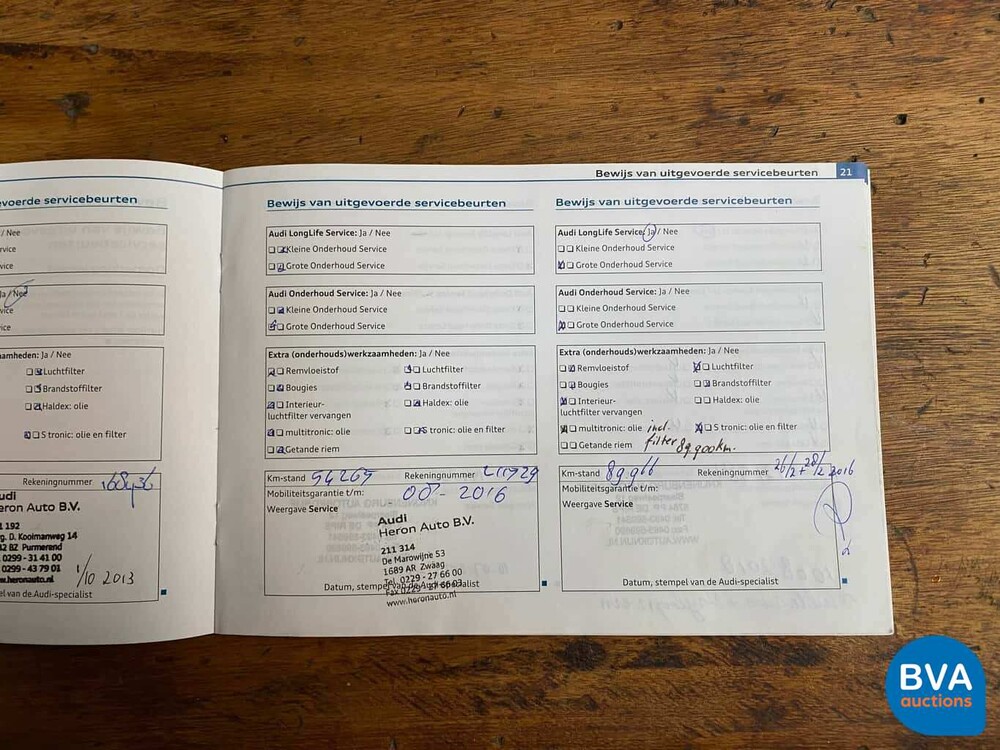 Bewijs van uitgevoerde servicebeurten 21
evoerde servicebeurten
/ Nee
rvice
vice
Ja / Nee
vice
ice
aamheden: Ja / Nee
Luchtfilter
Brandstoffilter
Haldex: olie
S tronic: olie en filter
Rekeningnummer 168436
Audi
eron Auto B.V.
1 192
g. D. Kooimanweg 14
42 BZ Purmerend
0299 - 31 41 00
0299 - 43 79 01
w.heronauto.nl
1/10 2013
el van de Audi-specialist
Bewijs van uitgevoerde servicebeurten
Audi LongLife Service: Ja / Nee
Kleine Onderhoud Service
Grote Onderhoud Service
Audi Onderhoud Service: Ja / Nee
Kleine Onderhoud Service
Grote Onderhoud Service
Extra (onderhouds)werkzaamheden: Ja / Nee
Remvloeistof Luchtfilter
Bougies Brandstoffilter
Interieur- Haldex: olie
luchtfilter vervangen
multitronic: olie S tronic: olie en filter
Getande riem
Km-stand 54265 Rekeningnummer
Mobiliteitsgarantie t/m: 2016
Weergave Service
Audi
Heron Auto B.V.
211 314
De Marowijne 53
1689 AR Zwaag
Tel. 0229 - 27 66 00
Fax 0229 - 27 66 03
www.heronauto.nl
Datum, stempel van de Audi-specialist
Bewijs van uitgevoerde servicebeurten
Audi LongLife Service: Ja / Nee
Kleine Onderhoud Service
Grote Onderhoud Service
Audi Onderhoud Service: Ja / Nee
Kleine Onderhoud Service
Grote Onderhoud Service
Extra (onderhouds)werkzaamheden: Ja / Nee
Remvloeistof Luchtfilter
Bougies Brandstoffilter
Interieur- Haldex: olie
luchtfilter vervangen
multitronic: olie incl. S tronic: olie en filter
Getande riem filter 89900km.
Km-stand 89966 Rekeningnummer 26/2 + 28/2 2016
Mobiliteitsgarantie t/m:
Weergave Service
Datum, stempel van de Audi-specialist
BVA
auctions